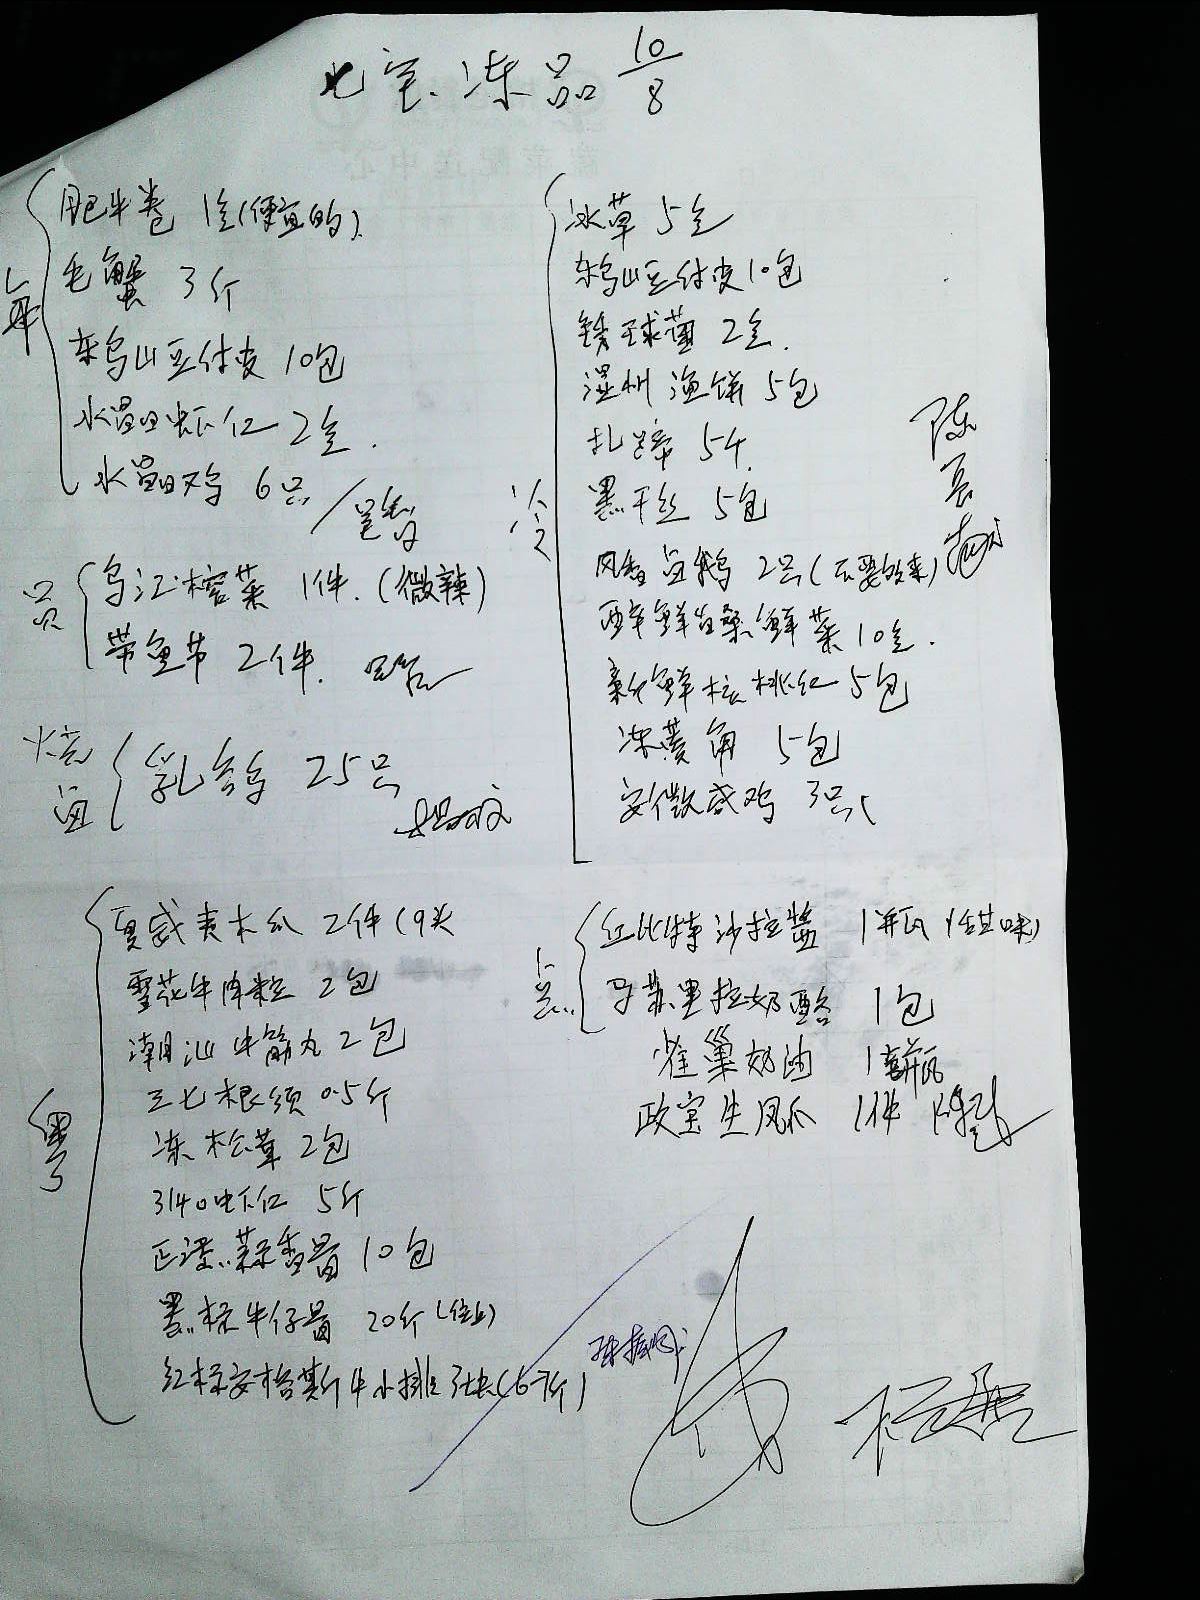 七宝冻品 10/8
肥牛卷 1盒(便宜的)
毛蟹 3斤
东乌山豆付皮 10包
水晶虾仁 2盒.
水晶鸡 6只
乌江榨菜 1件.(微辣)
带鱼节 2件.
乳鸽 25只
冷
冰草 5盒
东乌山豆付皮 10包
绣球菌 2盒.
温州渔饼 5包
扎蹄 5个
黑干丝 5包
风香鱼鹅 2只(不要的来)
醉鲜 鲜菜 10盒.
新鲜核桃仁 5包
冻菱角 5包
安徽咸鸡 3只
粤
夏威夷木瓜 2件(9头
雪花牛肉粒 2包
潮汕牛筋丸 2包
三七根须 0.5斤
冻松茸 2包
3140虾仁 5斤
正浸蒜香骨 10包
黑标牛仔骨 20斤(位上)
红标安格斯牛小排 3块(6-7斤)
点
红比特沙拉酱 1瓶(甜味)
马苏里拉奶酪 1包
雀巢奶油 1瓶
政宝生凤爪 1件